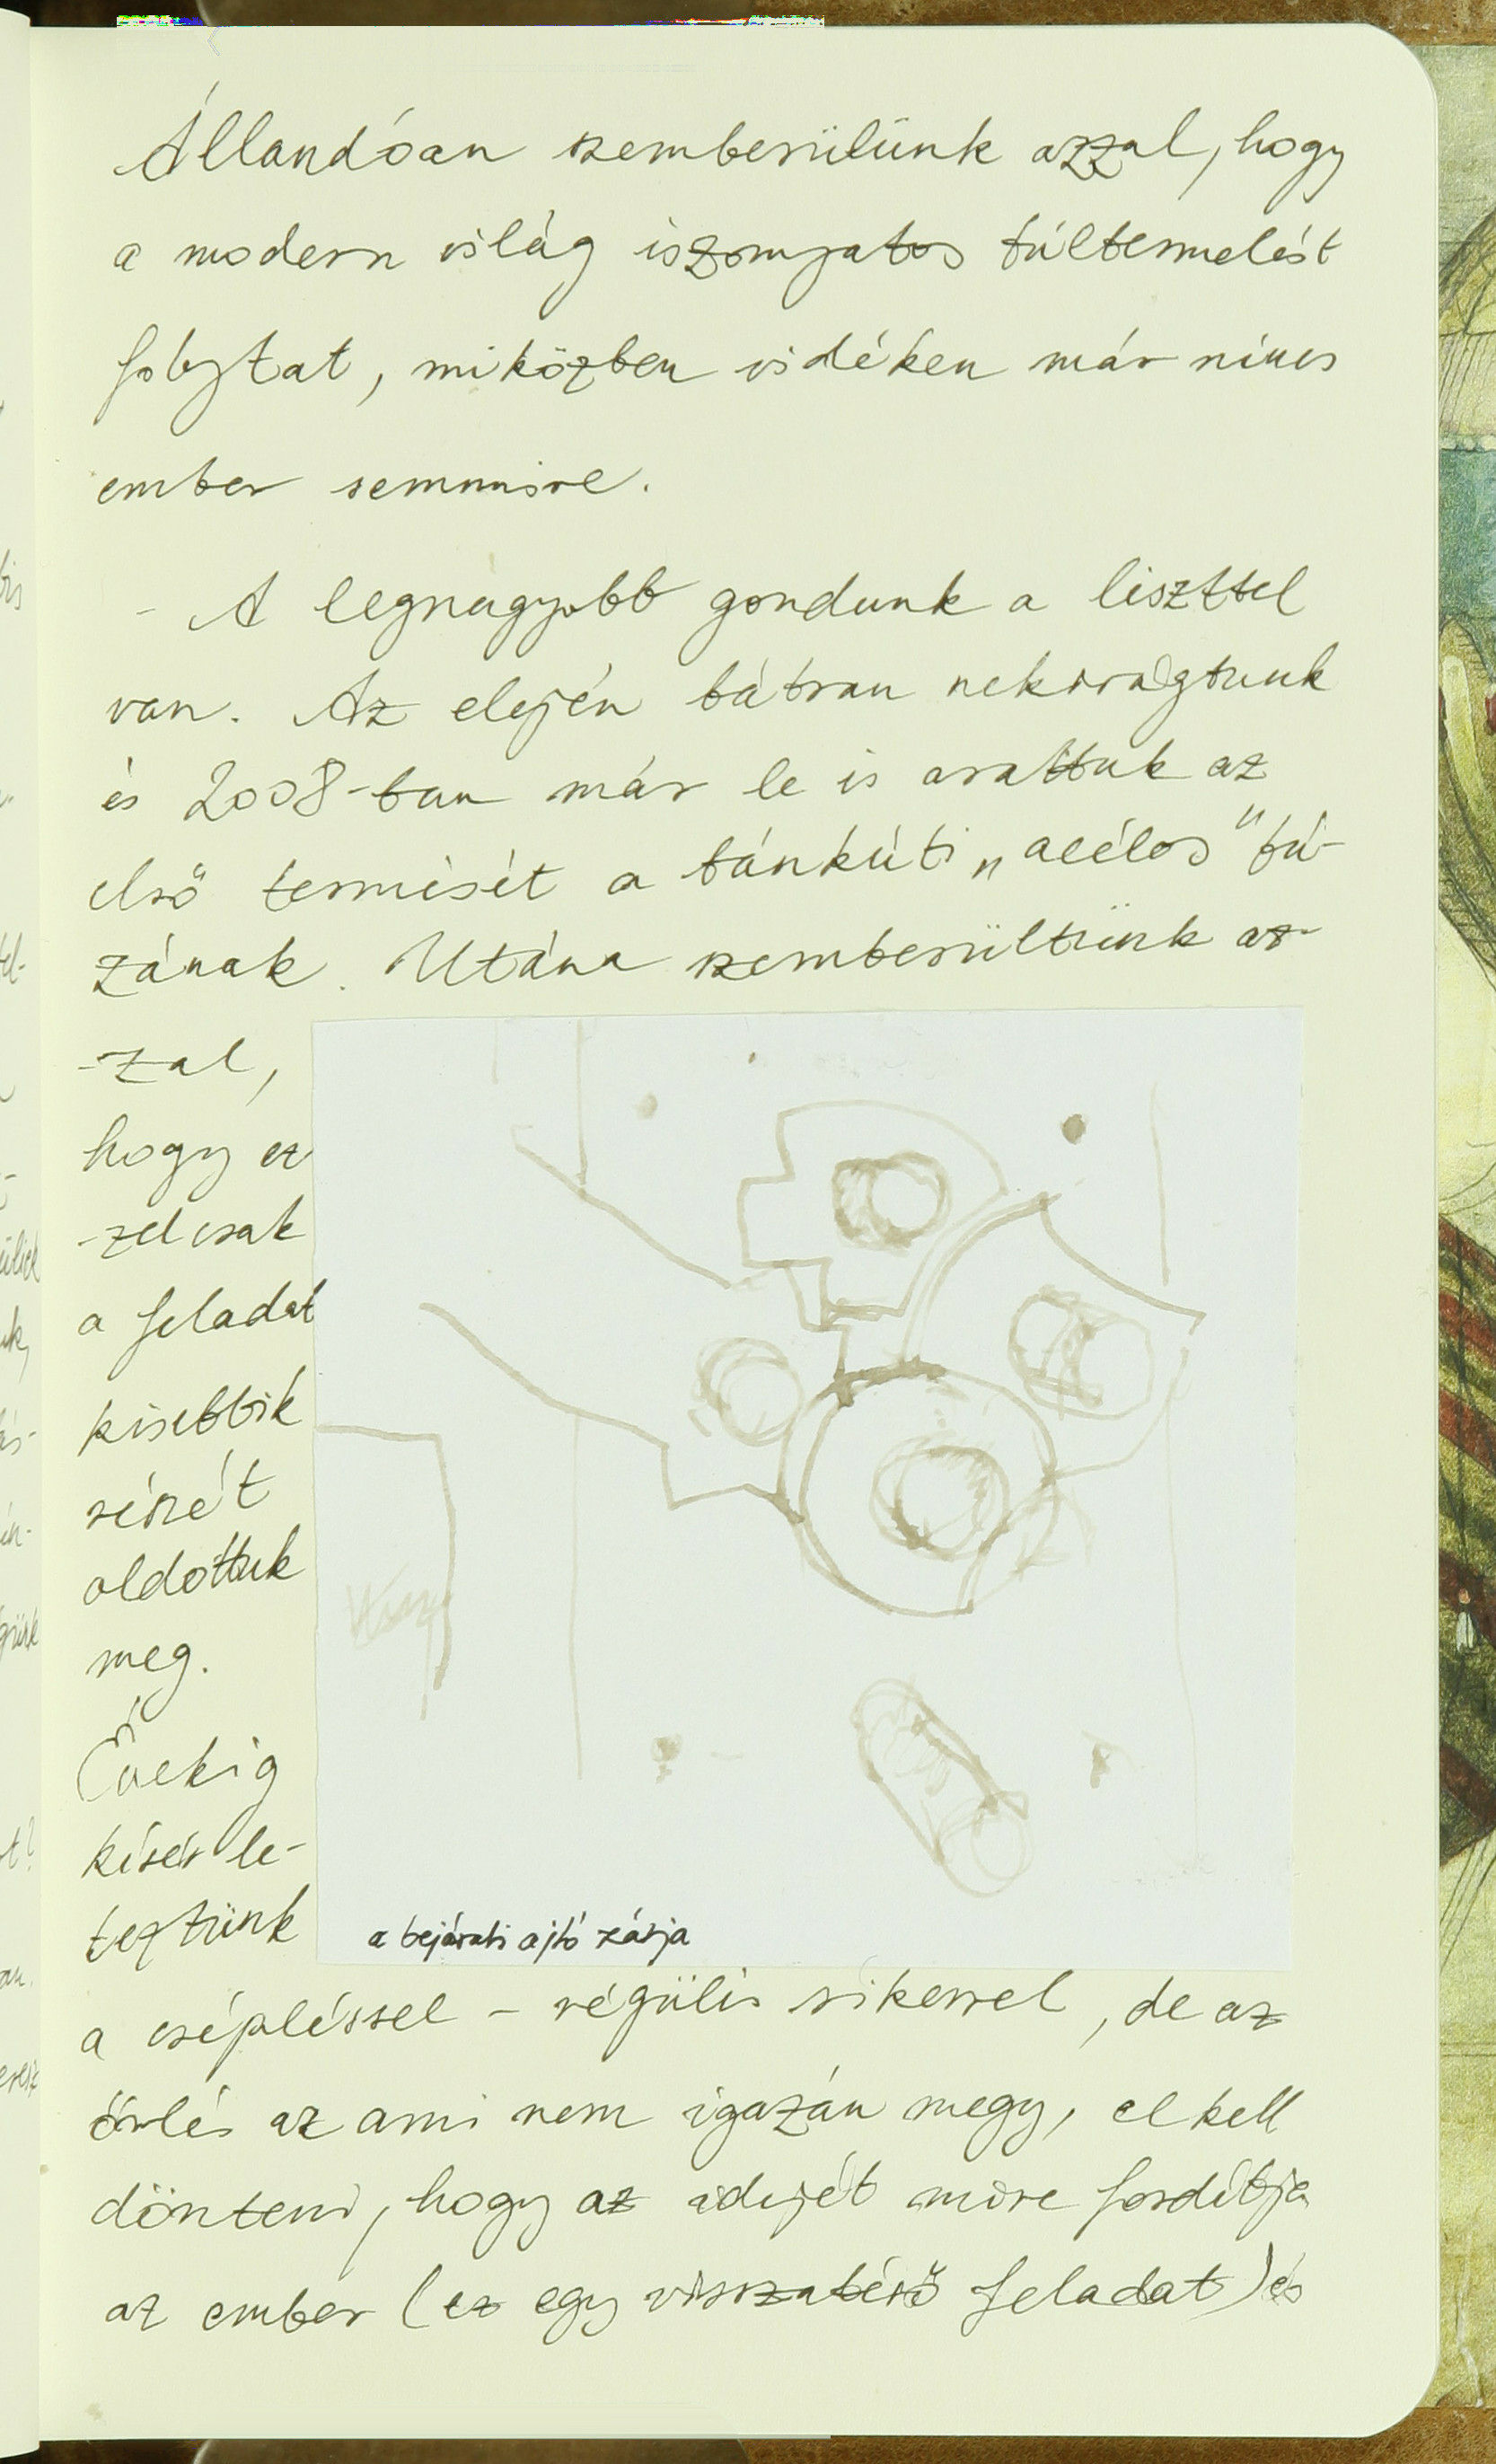 Állandóan szemberülünk azzal, hogy
a modern világ iszonyatos túltermelést
folytat, miközben vidéken már nincs
ember semmire.
- A legnagyobb gondunk a liszttel
van. Az elején bátran nekirugtunk
és 2008-ban már le is arattuk az
első termését a bánkúti „acélos" bú-
zának. Utána szemberültünk az-
-zal,
hogy ez
-zel csak
a feladat
kisebbik
részét
oldottuk
meg.
Évekig
kísérle-
teztünk
a bejárati ajtó zárja
a csépléssel – végülis sikerrel, de az
őrlés az ami nem igazán megy, el kell
dönteni, hogy az idejét mire fordítja
az ember (ez egy visszatérő feladat) és